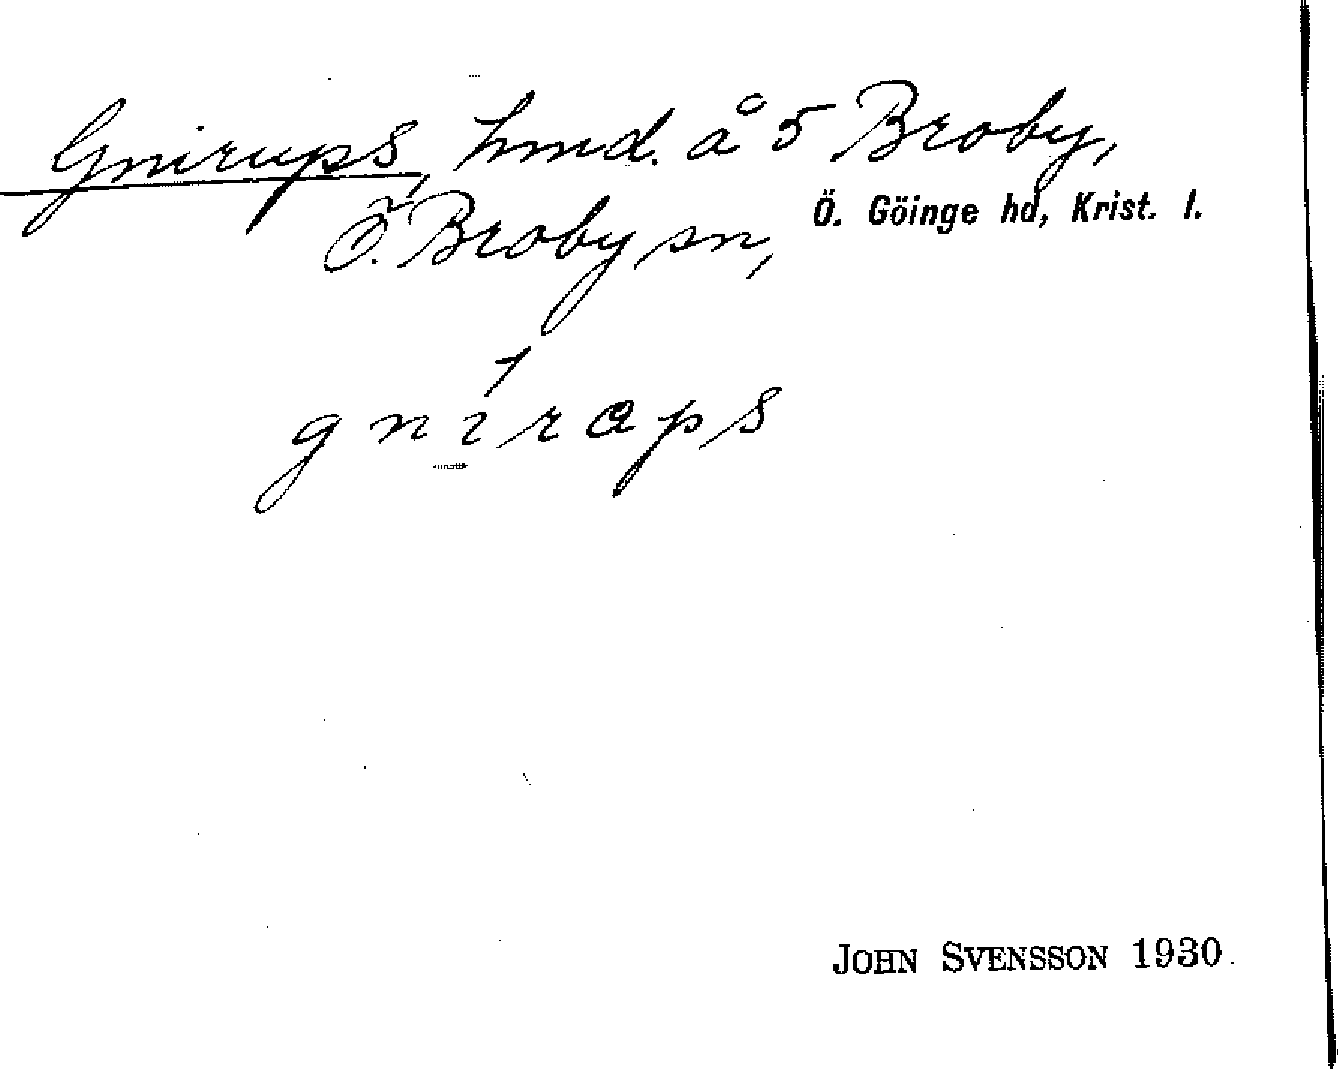 Gnirups, hmd. å 5 Broby,
Ö. Broby sn, Ö. Göinge hd, Krist. l.
gníraps
JOHN SVENSSON 1930.